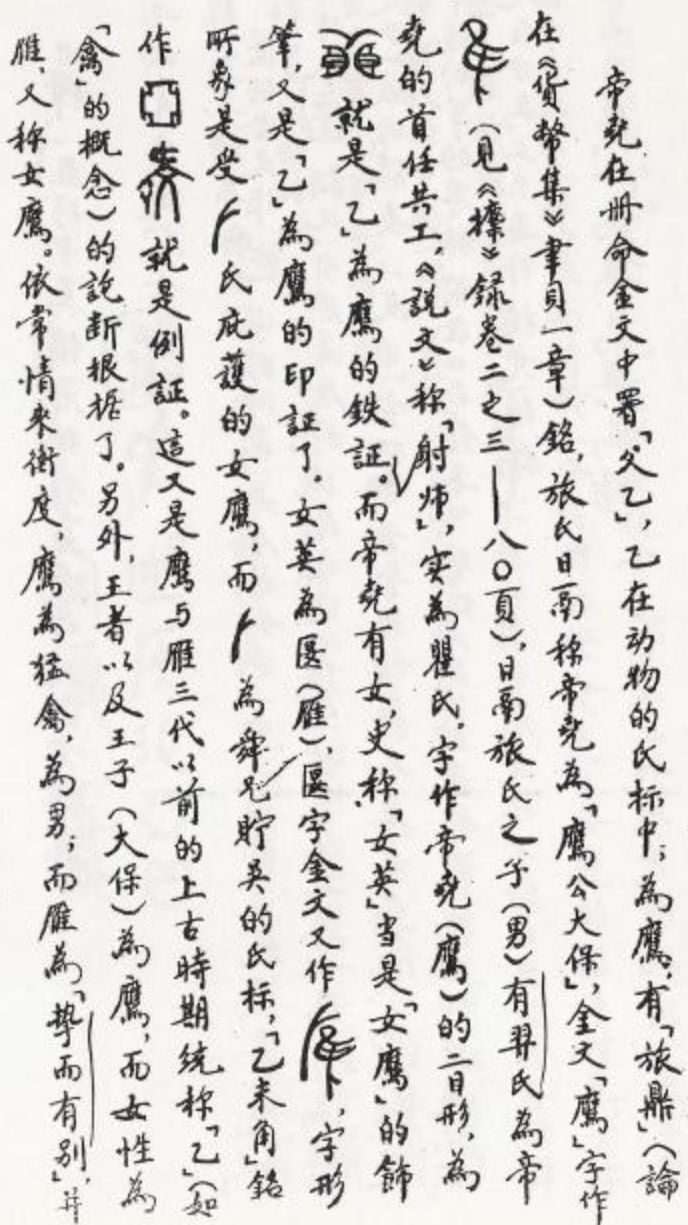 帝尧在册命金文中署「父乙」，乙在动物的氏标中；為鷹，有「旅鼎」（論
在《货幣集》聿貝一章）銘，旅氏日䚂称帝尧為「鷹公大保」，金文「鷹」字作
（見《攈》録卷二之三——八〇頁），日䚂旅氏之子（男）有羿氏為帝
尧的首任共工，《説文》称「射师」，实為瞿氏，字作帝尧（鷹）的二目形，為
就是「乙」為鷹的鉄証。而帝尧有女，史称「女英」当是「女鷹」的飾
筆，又是「乙」為鷹的印証了。女英為匽（雁），匽字金文又作，字形
所象是受氏庇護的女鷹，而為舜兄貯吳的氏标，「乙未角」銘
作就是例証。這又是鷹与雁三代以前的上古時期统称「乙」（如
「禽」的概念）的説断根据了。另外，王者以及王子（大保）為鷹，而女性為
雁，又称女鷹。依常情来衡度，鷹為猛禽，為男；而雁為「摯而有别」，并